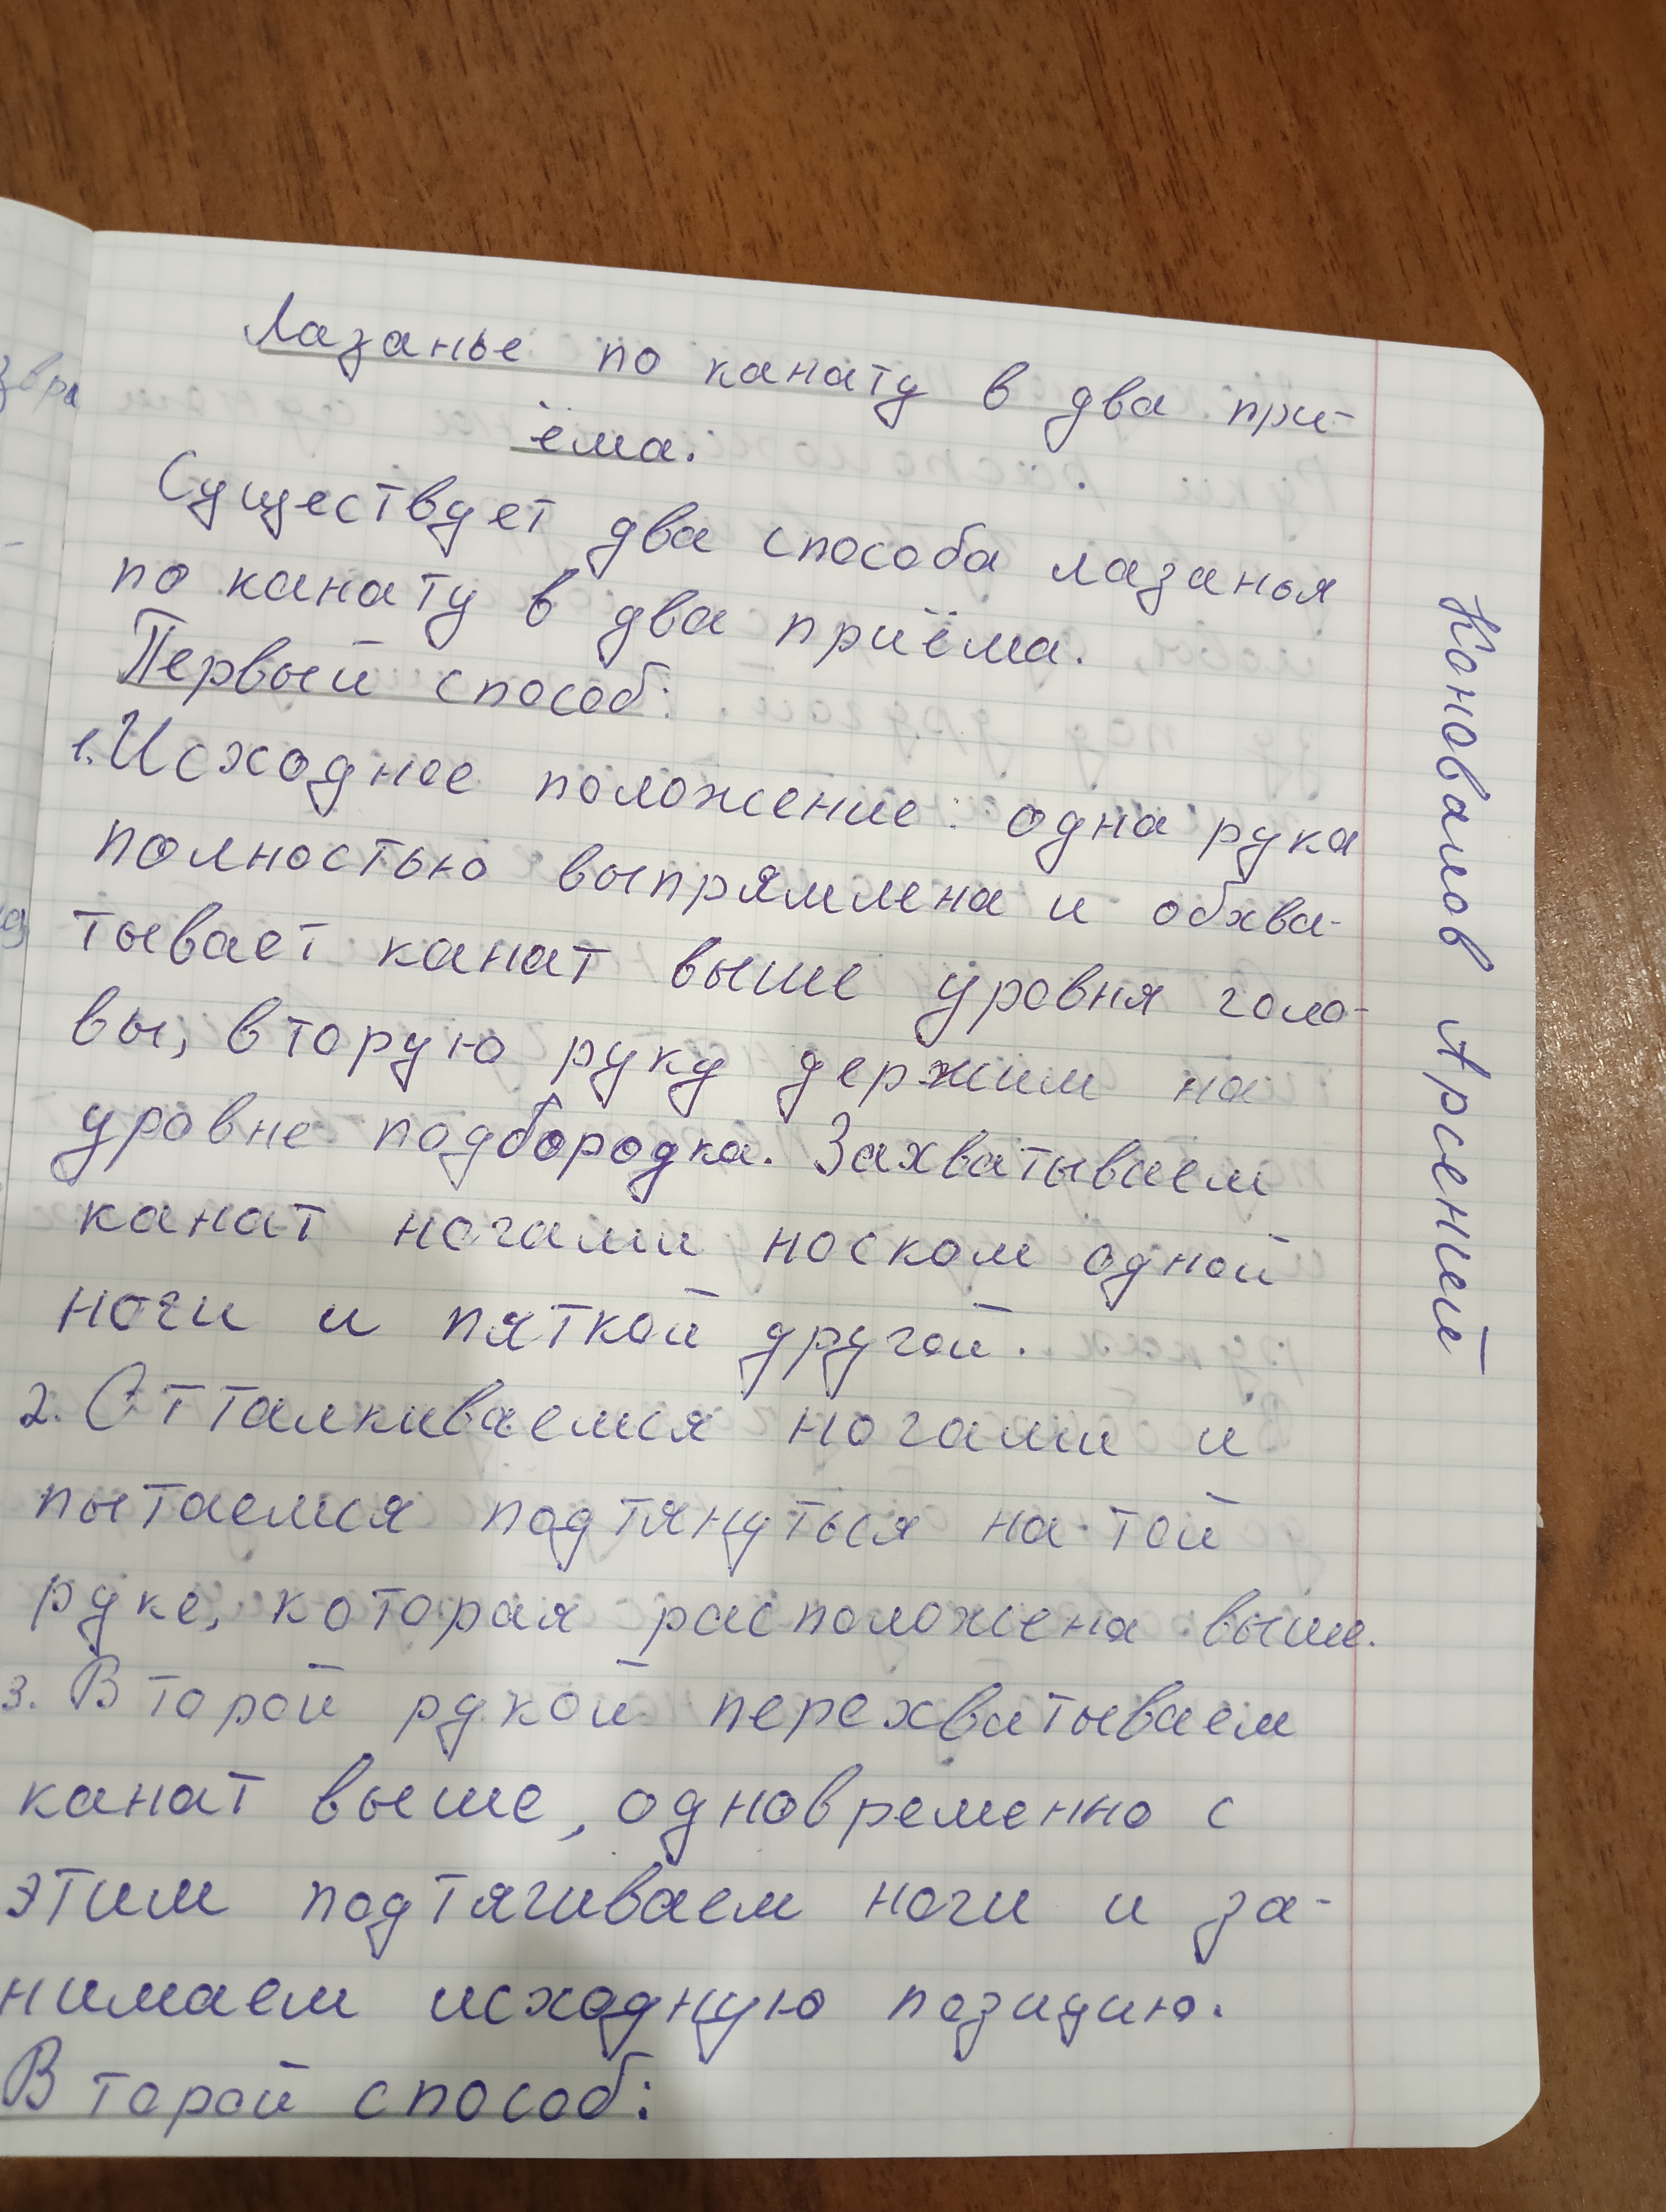 Лазанье по канату в два при-
ёма.
Существует два способа лазанья
по канату в два приёма.
Первый способ:
1. Исходное положение: одна рука
полностью выпрямлена и обхва-
тывает канат выше уровня голо-
вы, вторую руку держим на
уровне подбородка. Захватываем
канат ногами носком одной
ноги и пяткой другой.
2. Отталкиваемся ногами и
пытаемся подтянуться на той
руке, которая расположена выше.
3. Второй рукой перехватываем
канат выше, одновременно с
этим подтягиваем ноги и за-
нимаем исходную позицию.
Второй способ:
Коновалов Арсений